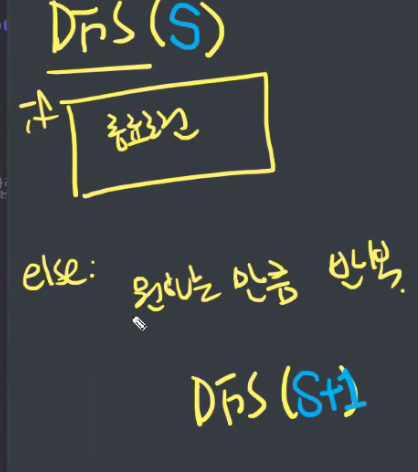 DFS(S)
if 종료조건
else: 원하는 만큼 반복.
DFS(S+1